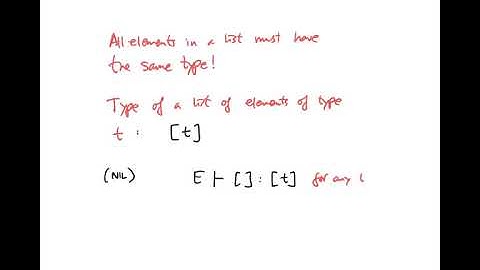 All elements in a list must have
the same type!
Type of a list of elements of type
t : [t]
(NIL) E ⊢ [] : [t] for any